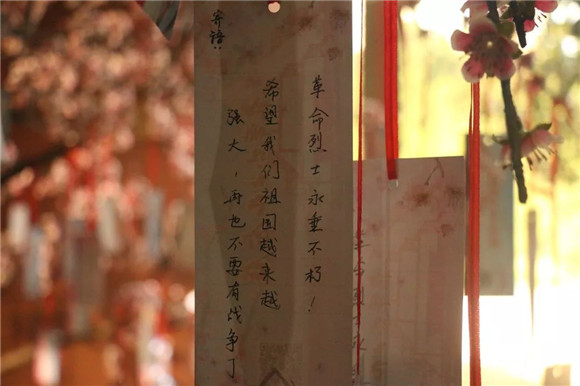 寄语：
革命烈士永垂不朽！
希望我们祖国越来越
强大，再也不要有战争了